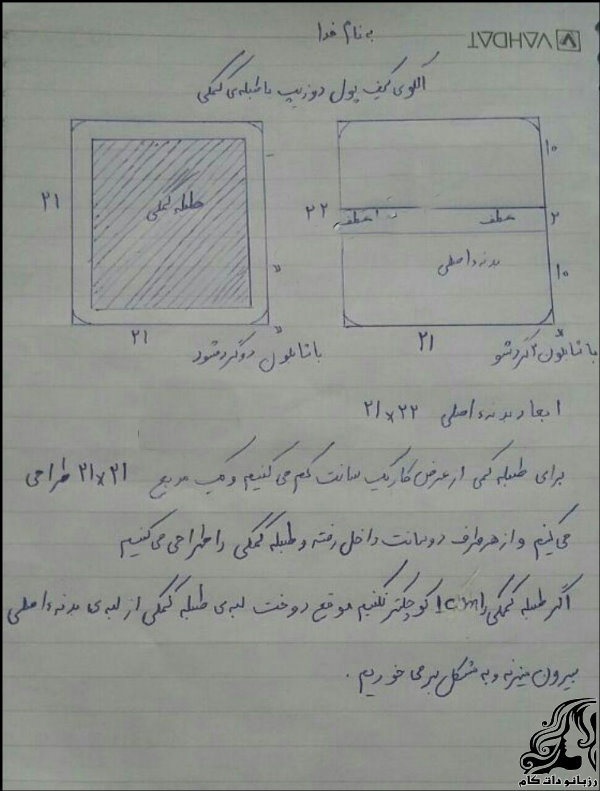 به نام خدا
VAHDAT
الگوی کیف پول دو زیپ با طبله‌ی کمکی
۲۱
طبله کمکی
۲۱
با شابلون دو گرد شود
۲۲
۱۰
عطف
عطف
۲
بدنه اصلی
۱۰
۲۱
با شابلون ۲ گرد شو
ابعاد بدنه اصلی ۲۱×۲۲
برای طبله کمی از عرض کار یک سانت کم می کنیم و یک مربع ۲۱×۲۱ طراحی
می کنیم و از هر طرف دو سانت داخل رفته و طبله کمکی را طراحی می کنیم
اگر طبله کمکی را 1cm کوچکتر نکنیم موقع دوخت لبه ی طبله کمکی از لبه ی بدنه اصلی
بیرون میزنه و به مشکل بر می خوریم .
رزبانو دات کام